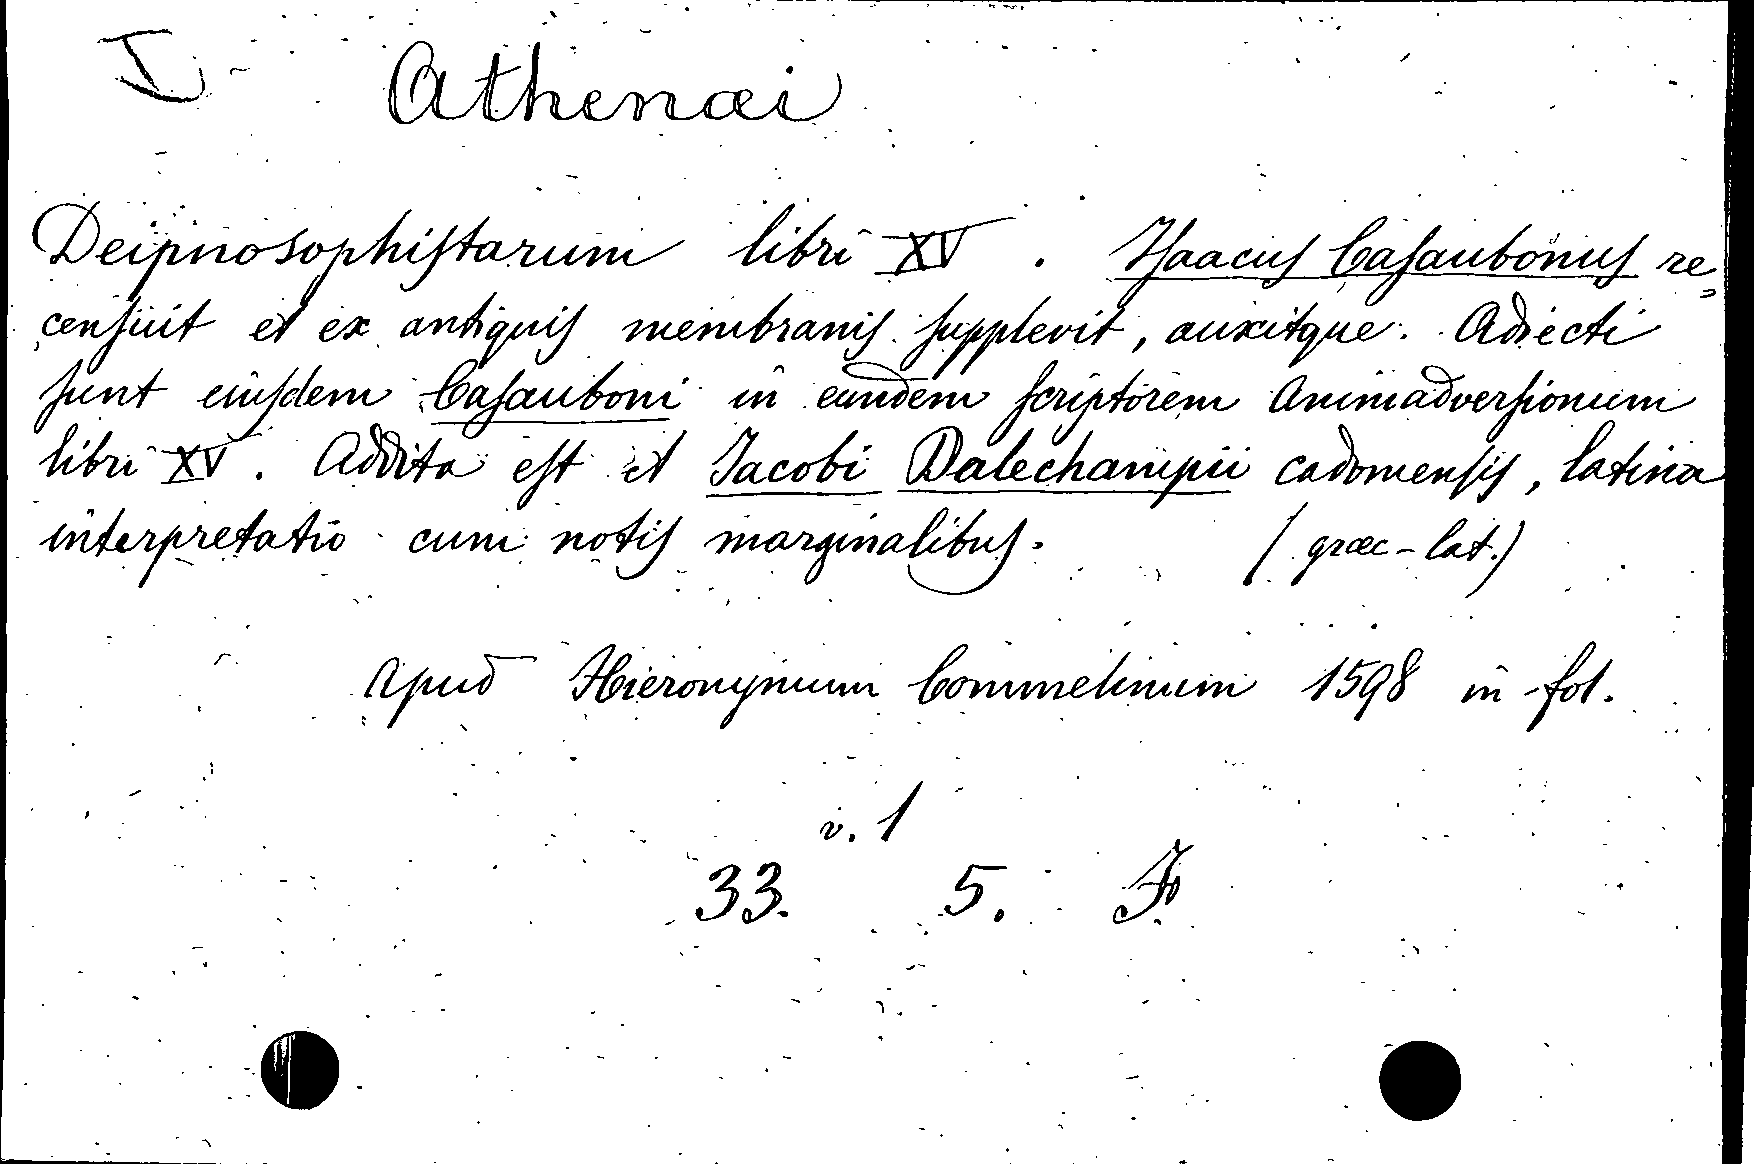 I Athenæi
Deipnosophistarum libri XV. Isaacus Casaubonus re=
censuit et ex antiquis membranis supplevit, auxitque. Adiecti
sunt eiusdem Casauboni in eundem scriptorem Animadversionum
libri XV. Addita est et Jacobi Dalechampii cadomensis, latina
interpretatio cum notis marginalibus. (græc-lat.)
Apud Hieronymum Commelinum 1598 in fol.
v. 1
33. 5. F.